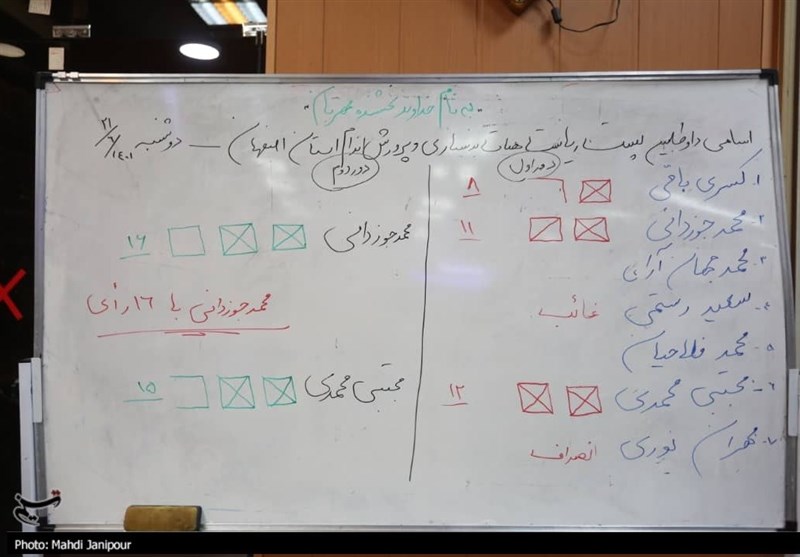 به نام خداوند بخشنده مهربان
اسامی داوطلبین پست ریاست هیات بدنسازی و پرورش اندام استان اصفهان — دوشنبه ۱۴۰۱/۶/۲۱
دور اول
دور دوم
۱- کسری باقی ۸
۲- محمد جوزدانی ۱۱
۳- محمد جهان آرای
۴- سعید رستمی غائب
۵- محمد فلاحیان
۶- مجتبی محمدی ۱۲
۷- مهران نوری انصراف
محمد جوزدانی ۱۶
محمد جوزدانی با ۱۶ رأی
مجتبی محمدی ۱۵
تسنیم
Photo: Mahdi Janipour